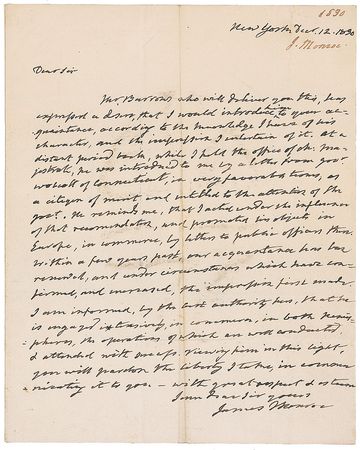 1830
New York Dec. 12. 1830
J. Monroe
Dear Sir
Mr. Burrows who will deliver you this, has
expressed a desire, that I would introduce him to your ac-
quaintance, according to the knowledge I have of his
character, and the impression I entertain of it. At a
distant period back, while I held the office of ch: Ma-
gistrate, he was introduced to me by a letter from govr.
wolcott of Connecticut, in very favorable terms, as
a citizen of merit, and entitled to the attention of the
govt. He reminds me, that I acted under the influence
of that recommendation, and promoted his objects in
Europe, in commerce, by letters to public officers there.
Within a few years past, our acquaintance has been
renewed, and under circumstances which have con-
firmed, and increased, the impression first made.
I am informed, by the best authority here, that he
is engaged extensively, in commerce, in both hemis-
pheres, the operations of which are well conducted,
& attended with success. Viewing him in this light,
you will pardon the liberty I take, in commu-
nicating it to you. - with great respect & esteem
I am Dear Sir yours
James Monroe